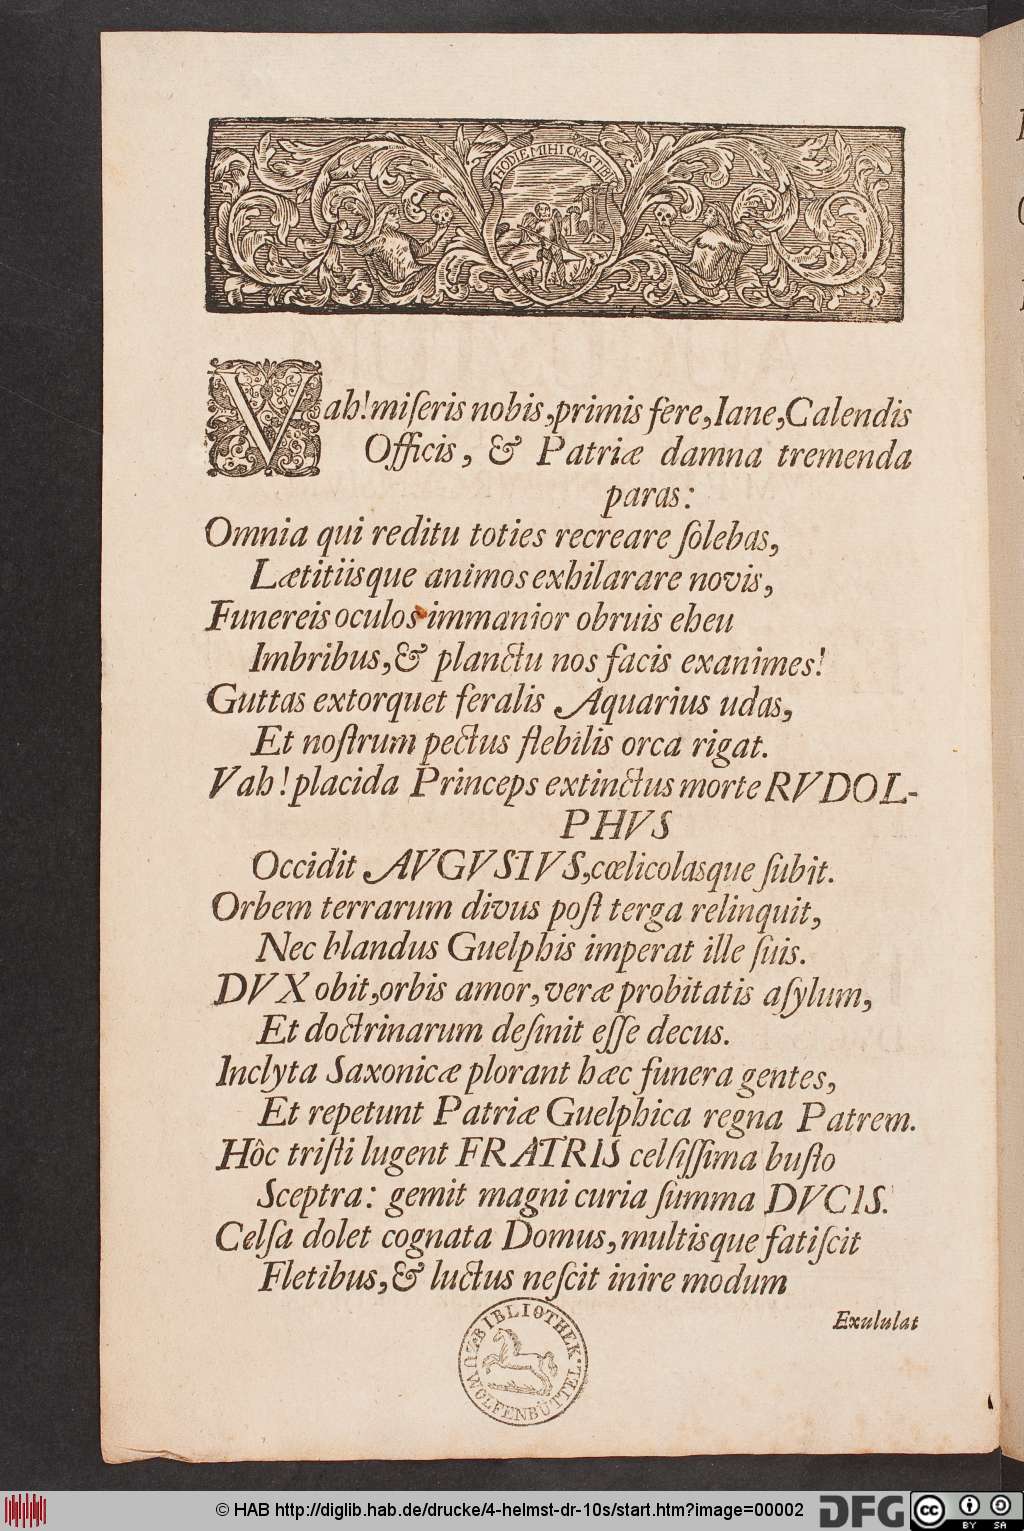 HODIE MIHI CRAS TIBI
Vah! miſeris nobis, primis fere, Iane, Calendis
Officis, & Patriæ damna tremenda
paras:
Omnia qui reditu toties recreare ſolebas,
Lætitiisque animos exhilarare novis,
Funereis oculos immanior obruis eheu
Imbribus, & planctu nos facis exanimes!
Guttas extorquet feralis Aquarius udas,
Et noſtrum pectus flebilis orca rigat.
Vah! placida Princeps extinctus morte RVDOL-
PHVS
Occidit AVGVSTVS, cœlicolasque ſubit.
Orbem terrarum divus poſt terga relinquit,
Nec blandus Guelphis imperat ille ſuis.
DVX obit, orbis amor, veræ probitatis aſylum,
Et doctrinarum deſinit eſſe decus.
Inclyta Saxonicæ plorant hæc funera gentes,
Et repetunt Patriæ Guelphica regna Patrem.
Hôc triſti lugent FRATRIS celſiſſima buſto
Sceptra: gemit magni curia ſumma DVCIS.
Celſa dolet cognata Domus, multisque fatiſcit
Fletibus, & luctus neſcit inire modum
Exululat
BIBLIOTHEK
ZU WOLFENBÜTTEL
© HAB http://diglib.hab.de/drucke/4-helmst-dr-10s/start.htm?image=00002
DFG
cc
BY SA